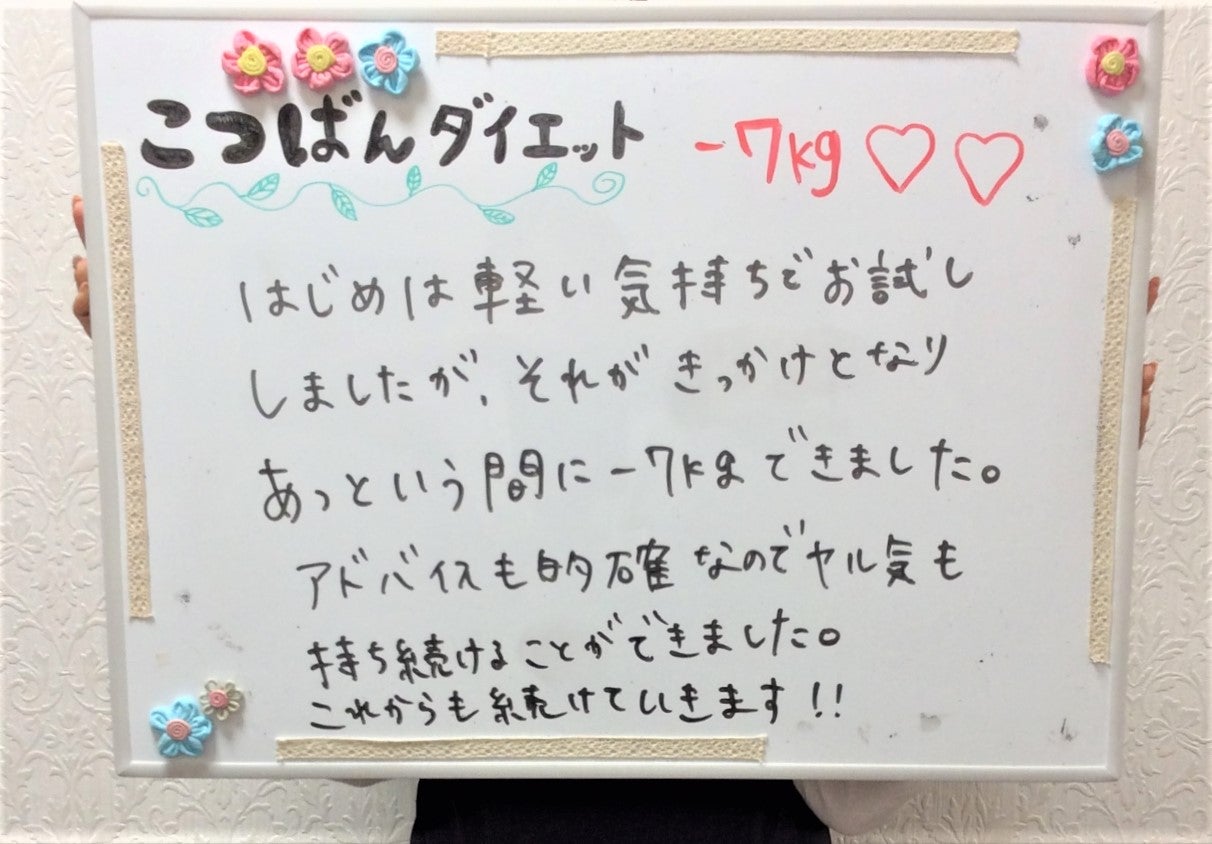 こつばんダイエット -7kg♡♡
はじめは軽い気持ちでお試し
しましたが、それがきっかけとなり
あっという間に-7kgまできました。
アドバイスも的確なのでヤル気も
持ち続けることができました。
これからも続けていきます!!